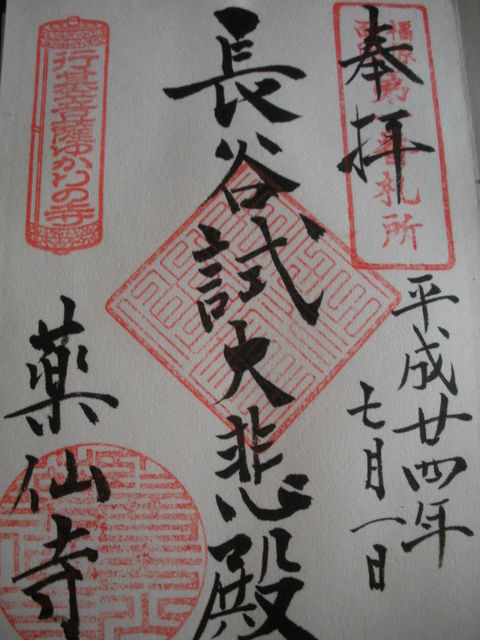 奉拝
番札所
平成廿四年
七月一日
長谷試大悲殿
行基菩薩ゆかりの寺
薬仙寺